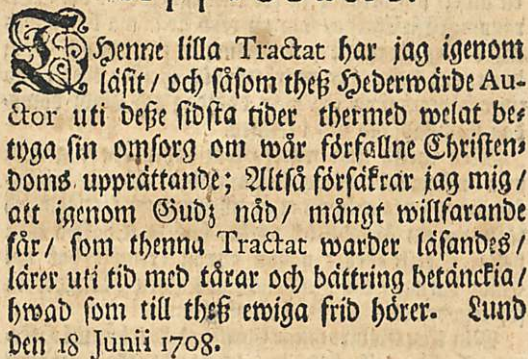 THenne lilla Tractat har jag igenom
läsit / och såsom theß Hederwärde Au-
ctor uti deße sidsta tider thermed welat be-
tyga sin omsorg om wår förfallne Christen-
doms upprättande; Altså försäkrar jag mig /
att igenom Gudz nåd / mångt willfarande
får / som thenna Tractat warder läsandes /
lärer uti tid med tårar och bättring betänckia /
hwad som till theß ewiga frid hörer. Lund
den 18 Junii 1708.